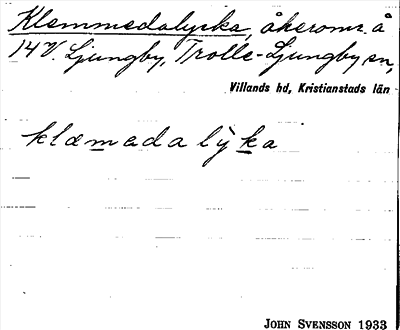 Klemmedalycka, åkeromr. å
14 V. Ljungby, Trolle-Ljungby sn,
Villands hd, Kristianstads län
klæmadalỳka
JOHN SVENSSON 1933